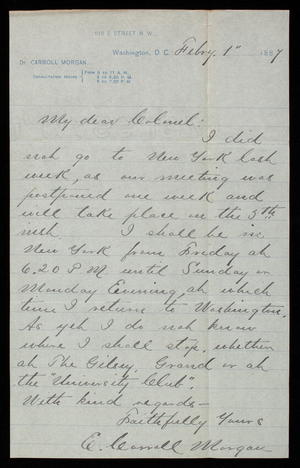 918 E STREET N.W.
Washington, D.C. Febry. 1st 1887
Dr. CARROLL MORGAN.
CONSULTATION HOURS
From 9 to 11 A.M.
My dear Colonel:
I did
not go to New York last
week, as our meeting was
postponed one week and
will take place on the 5th
inst. I shall be in
New York from Friday at
6.20 P.M. until Sunday or
Monday Evening at which
time I return to Washington.
As yet I do not know
where I shall stop, whether
at The Gilsey, Grand or at
the "University Club".
With kind regards—
Faithfully Yours
E. Carroll Morgan